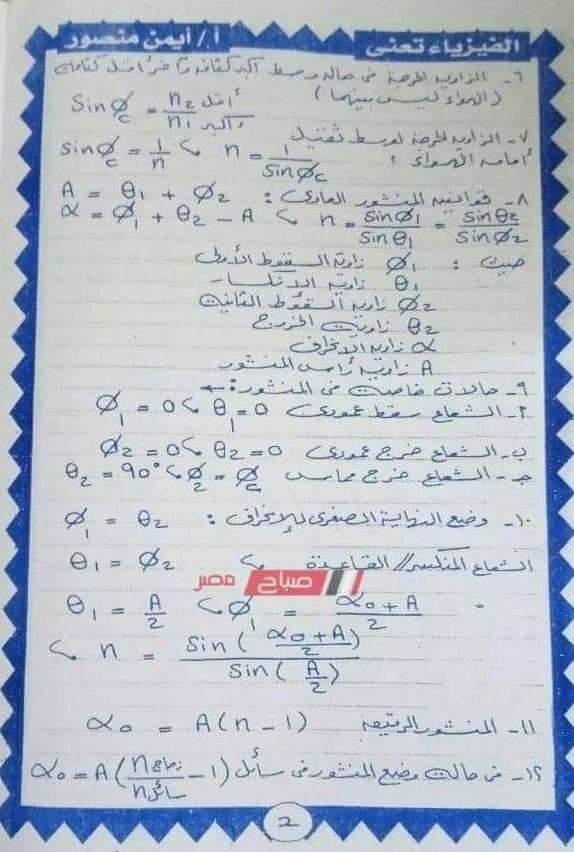 الفيزياء تعنى أ/ أيمن منصور
٦- الزاوية الحرجة فى حالة وسط أكبر كثافة وآخر أقل كثافة
(الهواء ليس بينهما) Sinφc = n2 أقل / n1 أكبر
٧- الزاوية الحرجة لوسط ثقيل
أمامه الهواء : n = 1/Sinφc ، sinφc = 1/n
٨- قوانين المنشور العادى : A = θ1 + φ2
n = sinφ1/Sinθ1 = sinθ2/Sinφ2 ، α = φ1 + θ2 - A
حيث : φ1 زاوية السقوط الأولى
θ1 زاوية الإنكسار
φ2 زاوية السقوط الثانية
θ2 زاوية الخروج
α زاوية الإنحراف
A زاوية رأس المنشور
٩- حالات خاصة فى المنشور :-
أ- الشعاع سقط عمودى φ1 = 0 ، θ1 = 0
ب- الشعاع خرج عمودى φ2 = 0 ، θ2 = 0
جـ- الشعاع خرج مماس θ2 = 90° ، φ2 = φc
١٠- وضع النهاية الصغرى للإنحراف : φ1 = θ2
الشعاع المنكسر // القاعدة ، θ1 = φ2
صباح مصر
θ1 = A/2 ، φ1 = αo + A / 2
، n = Sin(αo + A / 2) / Sin(A/2)
١١- المنشور الرقيق αo = A(n - 1)
١٢- فى حالة وضع المنشور فى سائل αo = A(n زجاج / n سائل - 1)
2